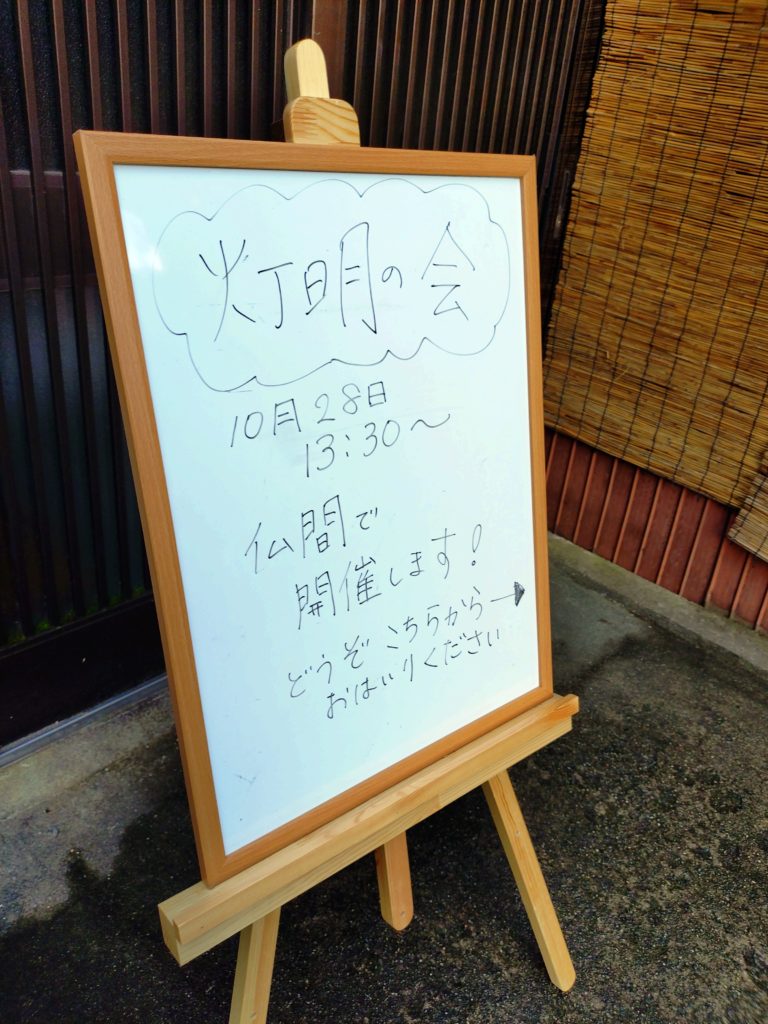 灯明の会
10月28日
13:30～
仏間で
開催します!
どうぞこちらから→
おはいりください